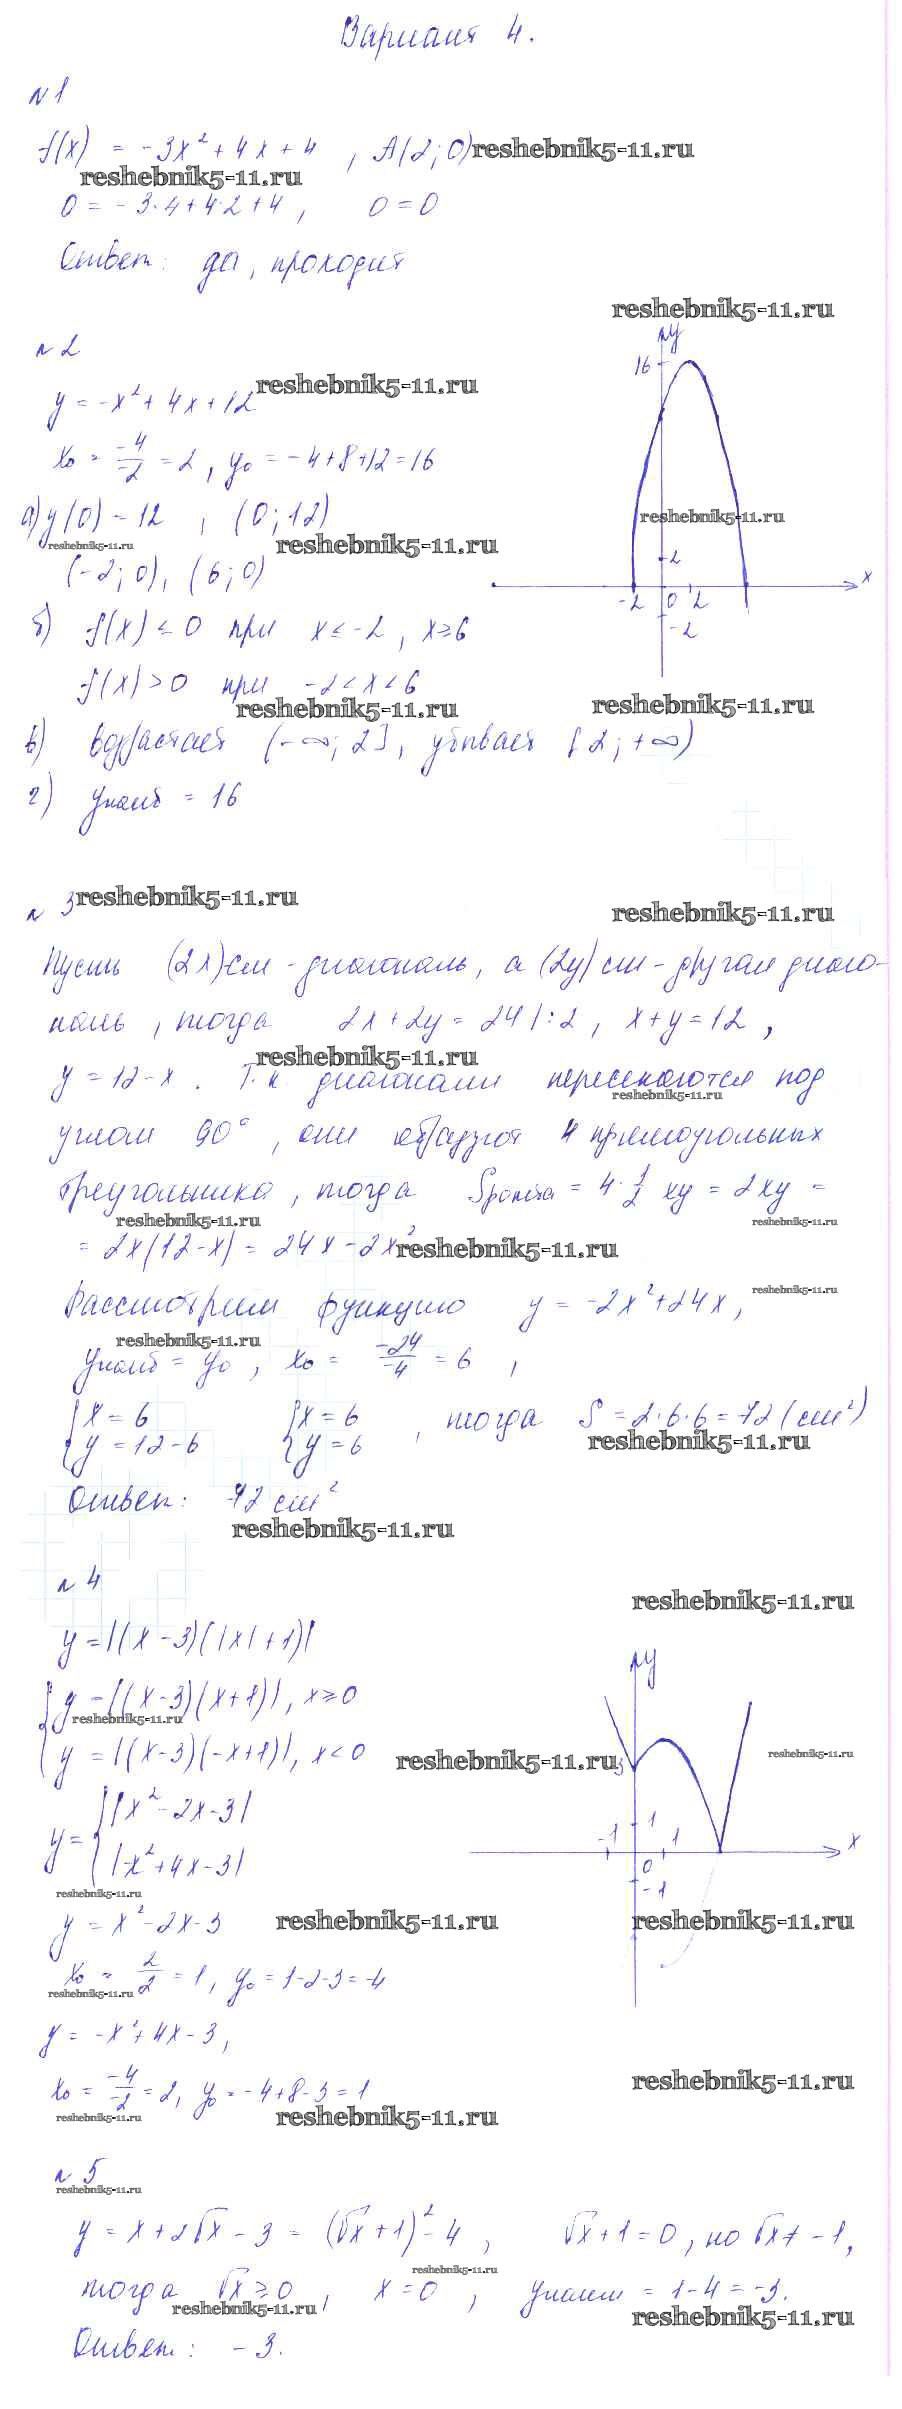 Вариант 4.
№ 1
f(x) = -3x² + 4x + 4 , A(2; 0) reshebnik5-11.ru
reshebnik5-11.ru
0 = -3·4 + 4·2 + 4 , 0 = 0
Ответ: да, проходит
reshebnik5-11.ru
№ 2
y = -x² + 4x + 12 reshebnik5-11.ru
x₀ = -4/-2 = 2 , y₀ = -4+8+12 = 16
а) y(0) = 12 , (0; 12)
reshebnik5-11.ru reshebnik5-11.ru
(-2; 0), (6; 0)
б) f(x) ≤ 0 при x ≤ -2 , x ≥ 6
f(x) > 0 при -2 < x < 6
reshebnik5-11.ru reshebnik5-11.ru
в) возрастает (-∞; 2] , убывает [2; +∞)
г) yнаиб = 16
y
16
reshebnik5-11.ru
2
-2 0 2 x
-2
№ 3 reshebnik5-11.ru
reshebnik5-11.ru
Пусть (2x) см - диагональ, а (2y) см - другая диаго-
наль , тогда 2x + 2y = 24 |:2 , x + y = 12 ,
reshebnik5-11.ru
y = 12 - x . Т.к диагонали пересекаются под
reshebnik5-11.ru
углом 90° , они образуют 4 прямоугольных
треугольника , тогда Sромба = 4 · 1/2 xy = 2xy =
reshebnik5-11.ru reshebnik5-11.ru
= 2x(12-x) = 24x - 2x² reshebnik5-11.ru
Рассмотрим функцию y = -2x² + 24x , reshebnik5-11.ru
reshebnik5-11.ru
yнаиб = y₀ , x₀ = -24/-4 = 6 ,
{ x = 6 { x = 6 , тогда S = 2·6·6 = 72 (см²)
y = 12 - 6 y = 6 reshebnik5-11.ru
Ответ: 72 см²
reshebnik5-11.ru
№ 4
reshebnik5-11.ru
y = |(x - 3)(|x| + 1)|
{ y = |(x-3)(x+1)| , x ≥ 0
reshebnik5-11.ru
y = |(x-3)(-x+1)| , x < 0 reshebnik5-11.ru
y = { |x² - 2x - 3|
|-x² + 4x - 3|
reshebnik5-11.ru
y
reshebnik5-11.ru
3
-1 1 1 x
0
-1
y = x² - 2x - 3 reshebnik5-11.ru reshebnik5-11.ru
x₀ = 2/2 = 1 , y₀ = 1-2-3 = -4
reshebnik5-11.ru
y = -x² + 4x - 3 ,
x₀ = -4/-2 = 2 , y₀ = -4+8-3 = 1
reshebnik5-11.ru
reshebnik5-11.ru reshebnik5-11.ru
№ 5
reshebnik5-11.ru
y = x + 2√x - 3 = (√x + 1)² - 4 , √x + 1 = 0 , но √x ≠ -1 ,
reshebnik5-11.ru
тогда √x ≥ 0 , x = 0 , yнаим = 1 - 4 = -3.
reshebnik5-11.ru reshebnik5-11.ru
Ответ: -3.